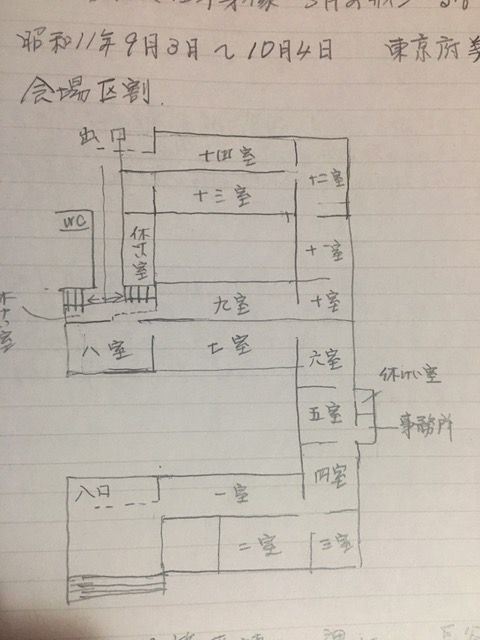 昭和11年9月3日〜10月4日 東京府美
会場区割.
出口
十四室
十二室
十三室
WC
休け室
十一室
九室
十室
八室
七室
六室
休け室
五室
事務所
四室
入口
一室
二室
三室